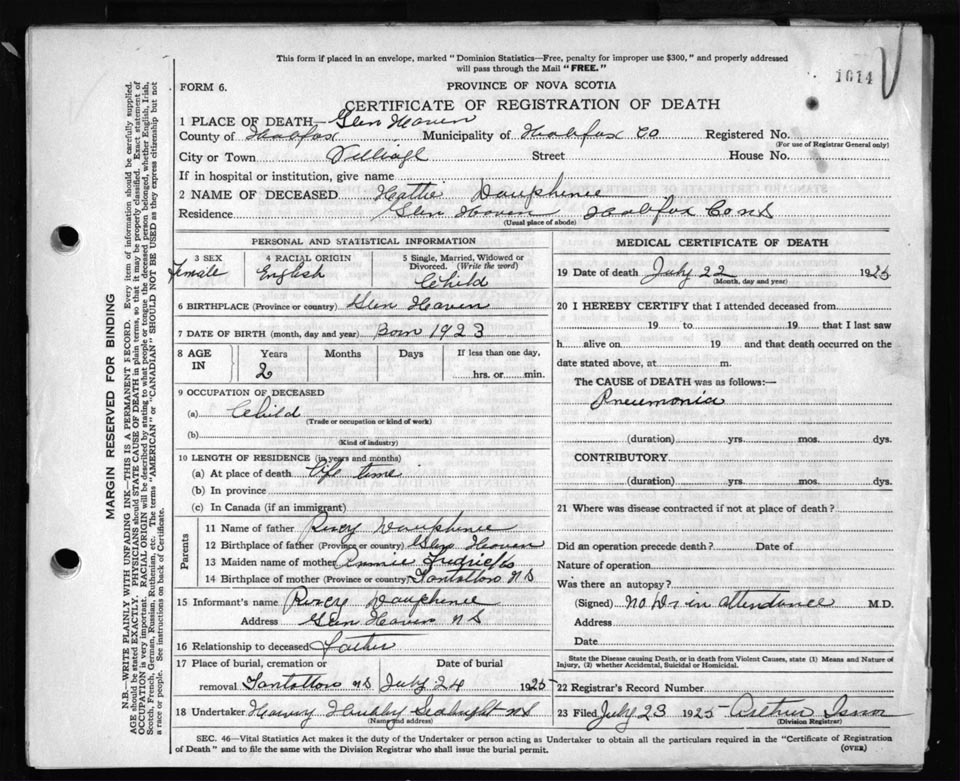 This form if placed in an envelope, marked "Dominion Statistics—Free, penalty for improper use $300," and properly addressed
will pass through the Mail "FREE."
1614
FORM 6.
PROVINCE OF NOVA SCOTIA
CERTIFICATE OF REGISTRATION OF DEATH
1 PLACE OF DEATH— Glen Haven
County of Halifax Municipality of Halifax Co Registered No.
(For use of Registrar General only)
City or Town Street House No.
If in hospital or institution, give name
2 NAME OF DECEASED Hattie Dauphinee
Residence Glen Haven Halifax Co NS
(Usual place of abode)
PERSONAL AND STATISTICAL INFORMATION
3 SEX Female
4 RACIAL ORIGIN English
5 Single, Married, Widowed or
Divorced. (Write the word)
Child
6 BIRTHPLACE (Province or country) Glen Haven
7 DATE OF BIRTH (month, day and year) Born 1923
8 AGE IN Years Months Days If less than one day,
2 hrs. or min.
9 OCCUPATION OF DECEASED
(a) Child
(Trade or occupation or kind of work)
(b)
(Kind of industry)
10 LENGTH OF RESIDENCE (in years and months)
(a) At place of death life time
(b) In province
(c) In Canada (if an immigrant)
Parents
11 Name of father Percy Dauphinee
12 Birthplace of father (Province or country) Glen Haven
13 Maiden name of mother Annie
14 Birthplace of mother (Province or country) NS
15 Informant's name Percy Dauphinee
Address Glen Haven NS
16 Relationship to deceased Father
17 Place of burial, cremation or Date of burial
removal NS July 24 1925
18 Undertaker Harvey Seabright NS
(Name and address)
MEDICAL CERTIFICATE OF DEATH
19 Date of death July 22 1925
(Month, day and year)
20 I HEREBY CERTIFY that I attended deceased from
19 to 19 that I last saw
h alive on 19 and that death occurred on the
date stated above, at m.
The CAUSE of DEATH was as follows:—
Pneumonia
(duration) yrs. mos. dys.
CONTRIBUTORY
(duration) yrs. mos. dys.
21 Where was disease contracted if not at place of death?
Did an operation precede death? Date of
Nature of operation
Was there an autopsy?
(Signed) No Dr in attendance M.D.
Address
Date
State the Disease causing Death, or in death from Violent Causes, state (1) Means and Nature of
Injury, (2) whether Accidental, Suicidal or Homicidal.
22 Registrar's Record Number
23 Filed July 23 1925 Arthur Isnor
(Division Registrar)
SEC. 46—Vital Statistics Act makes it the duty of the Undertaker or person acting as Undertaker to obtain all the particulars required in the "Certificate of Registration
of Death" and to file the same with the Division Registrar who shall issue the burial permit. (OVER)
MARGIN RESERVED FOR BINDING
N.B.—WRITE PLAINLY WITH UNFADING INK—THIS IS A PERMANENT RECORD. Every item of information should be carefully supplied.
AGE should be stated EXACTLY. PHYSICIANS should STATE CAUSE OF DEATH in plain terms, so that it may be properly classified. Exact statement of
OCCUPATION is very important. RACIAL ORIGIN will be described by stating to what people or tongue the deceased person belonged, whether English, Irish,
Scotch, French, German, Russian, Ruthenian, etc. The terms "AMERICAN" or "CANADIAN" SHOULD NOT BE USED as they express citizenship but not
a race or people. See instructions on back of Certificate.